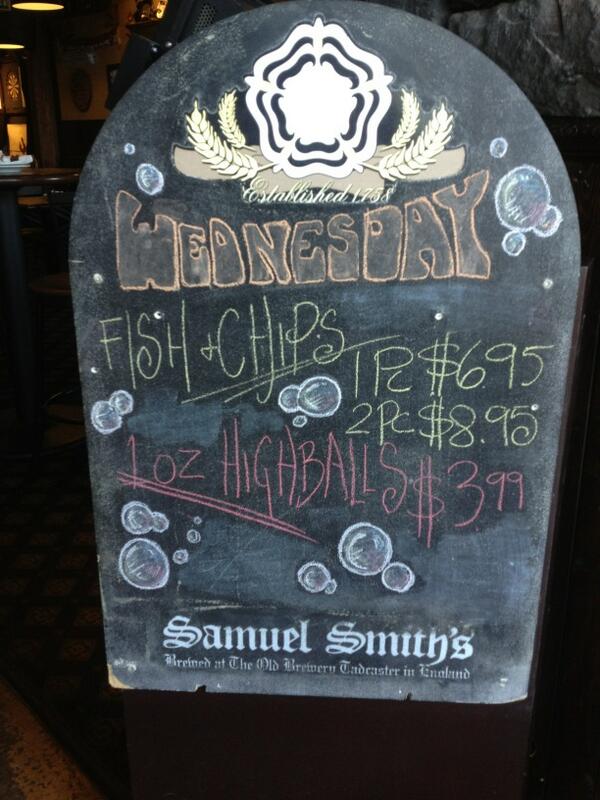 Established 1758
WEDNESDAY
FISH + CHIPS 1PC $6.95
2PC $8.95
1OZ HIGHBALLS $3.99
Samuel Smith's
Brewed at The Old Brewery Tadcaster in England